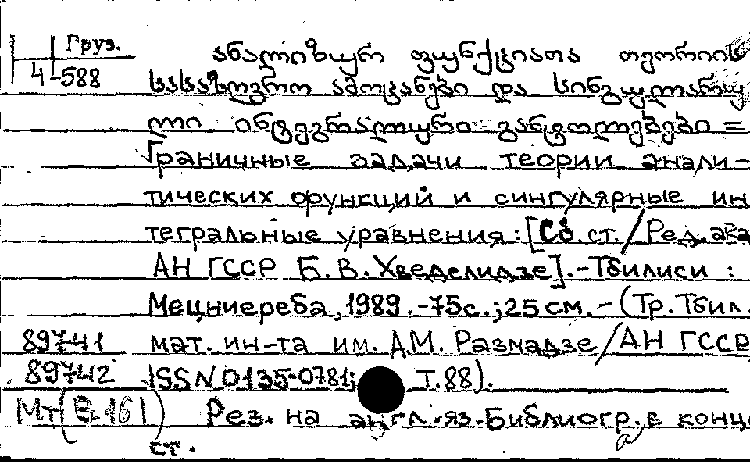 Груз.
4-588
ანალიზურ ფუნქციათა თეორიის
სასაზღვრო ამოცანები და სინგულარუ
ლი ინტეგრალური განტოლებები =
Граничные задачи теории анали-
тических функций и сингулярные ин
тегральные уравнения: [Сб ст. / Ред. ака
АН ГССР Б. В. Хведелидзе]. - Тбилиси :
Мецниереба, 1989. - 75с.; 25 см. - (Тр. Тбил.
89741 мат. ин-та им. А.М. Размадзе / АН ГССР
89742 ISSN 0135-0781; Т.88).
Рез. на англ. яз. Библиогр. в конце
ст.